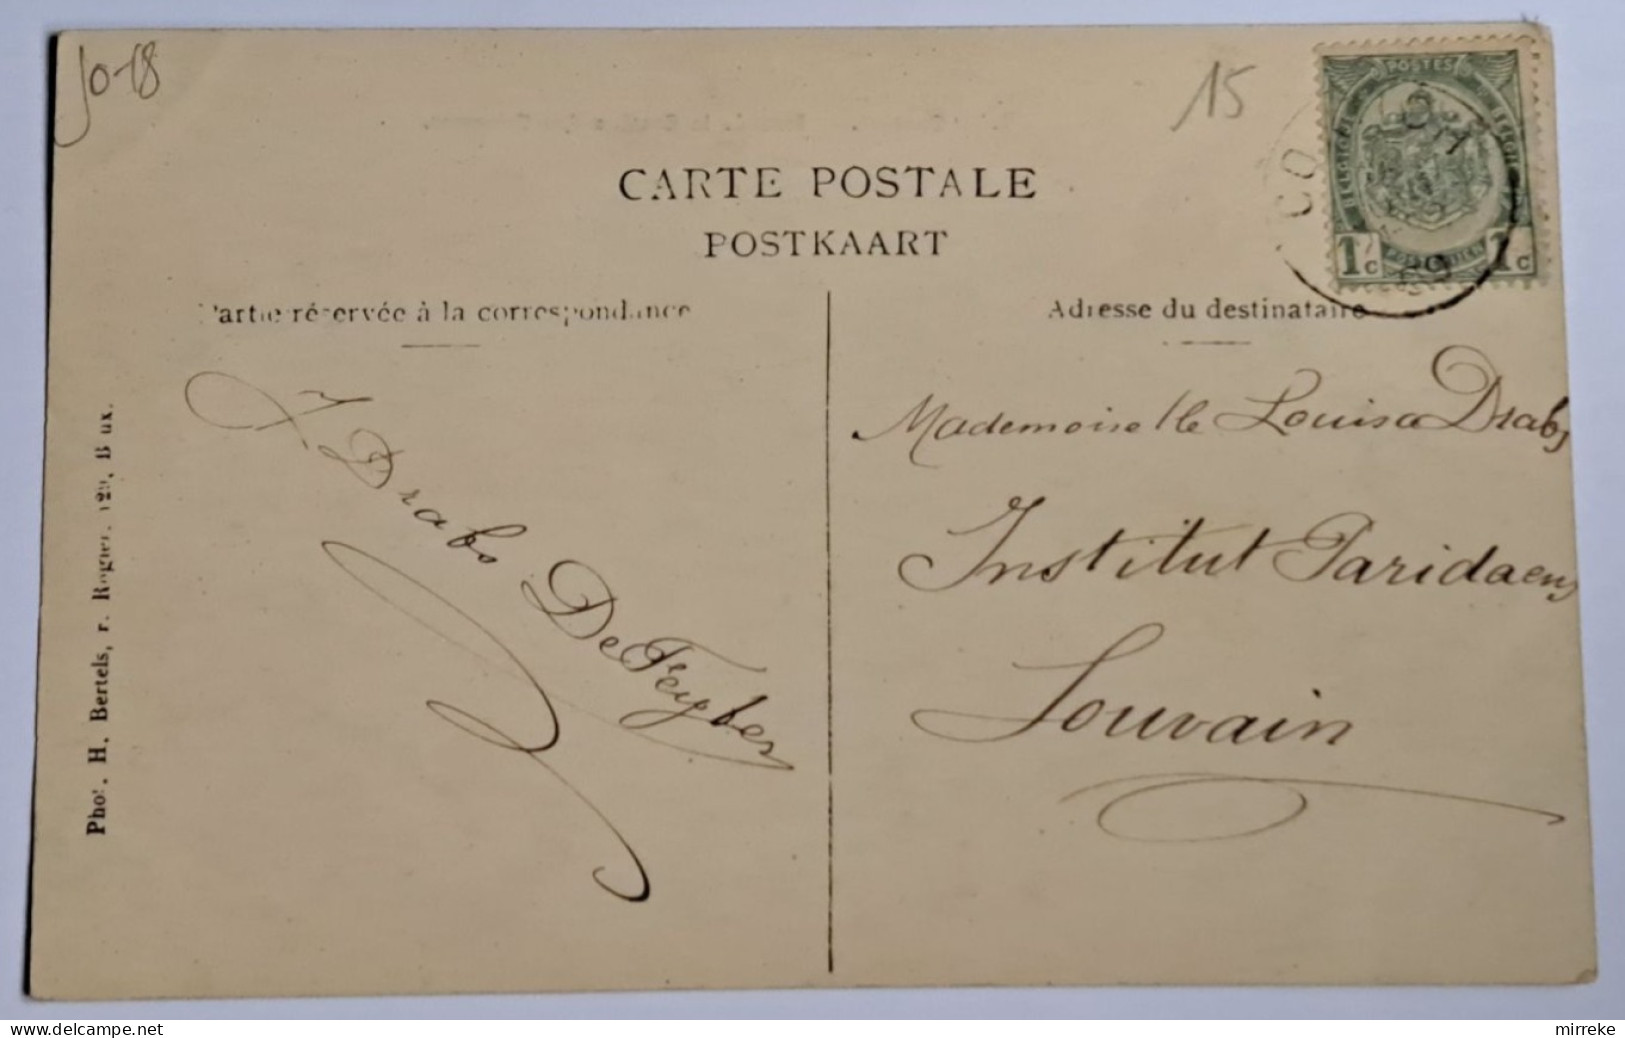 Jo-18
15
CARTE POSTALE
POSTKAART
Partie réservée à la correspondance
Adresse du destinataire
POSTES
BELGIQUE
BELGIE
1c
1c
CO
09
Mademoiselle Louisa Drabs
Institut Paridaens
Louvain
J. Drabs De Feyter
Phot. H. Bertels, r. Rogier, 129, Brux.
delcampe.net
mirreke